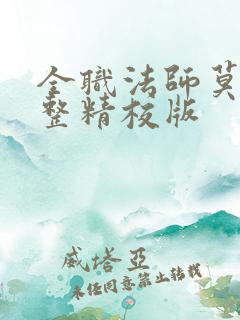 全職法師莫
整精校版
威塔亞
未经同意禁止转载